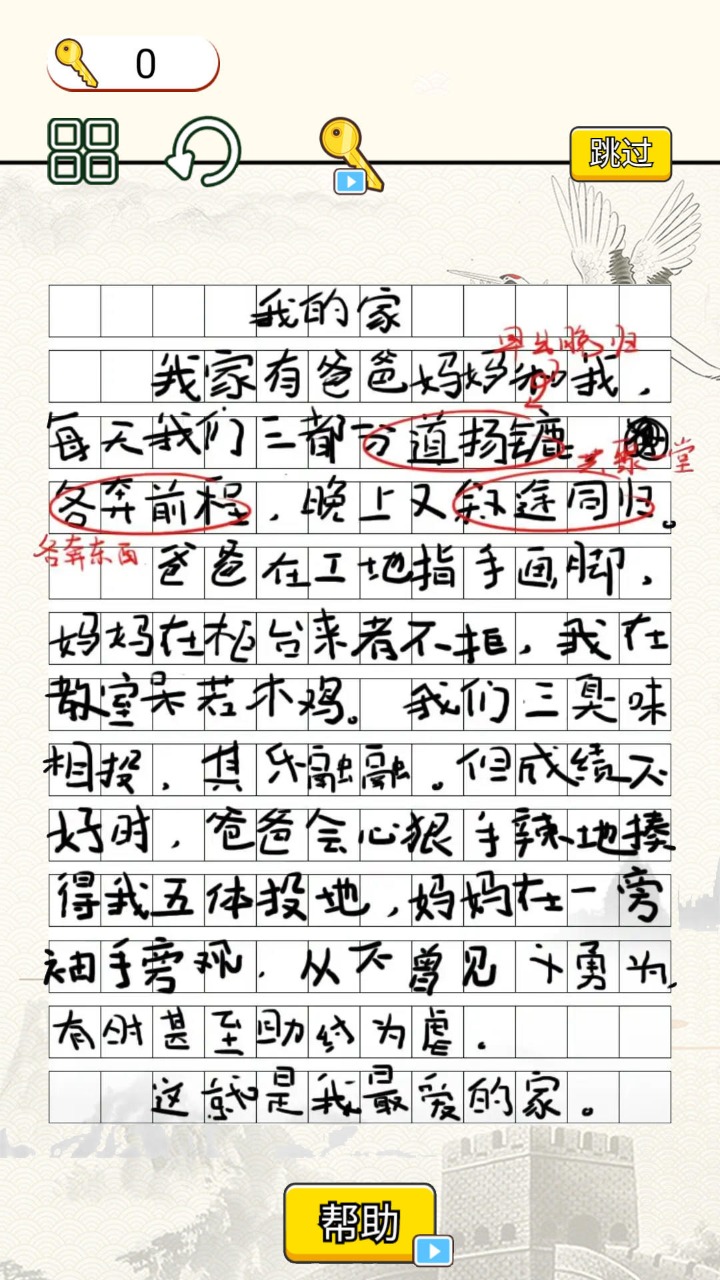 0
跳过
我的家
早出晚归
我家有爸爸妈妈和我，
每天我们三都分道扬镳
共聚一堂
各奔前程，晚上又殊途同归。
各奔东西
爸爸在工地指手画脚，
妈妈在柜台来者不拒，我在
教室呆若木鸡。我们三臭味
相投，其乐融融。但成绩不
好时，爸爸会心狠手辣地揍
得我五体投地，妈妈在一旁
袖手旁观，从不曾见
勇为，
有时甚至助纣为虐。
这就是我最爱的家。
帮助